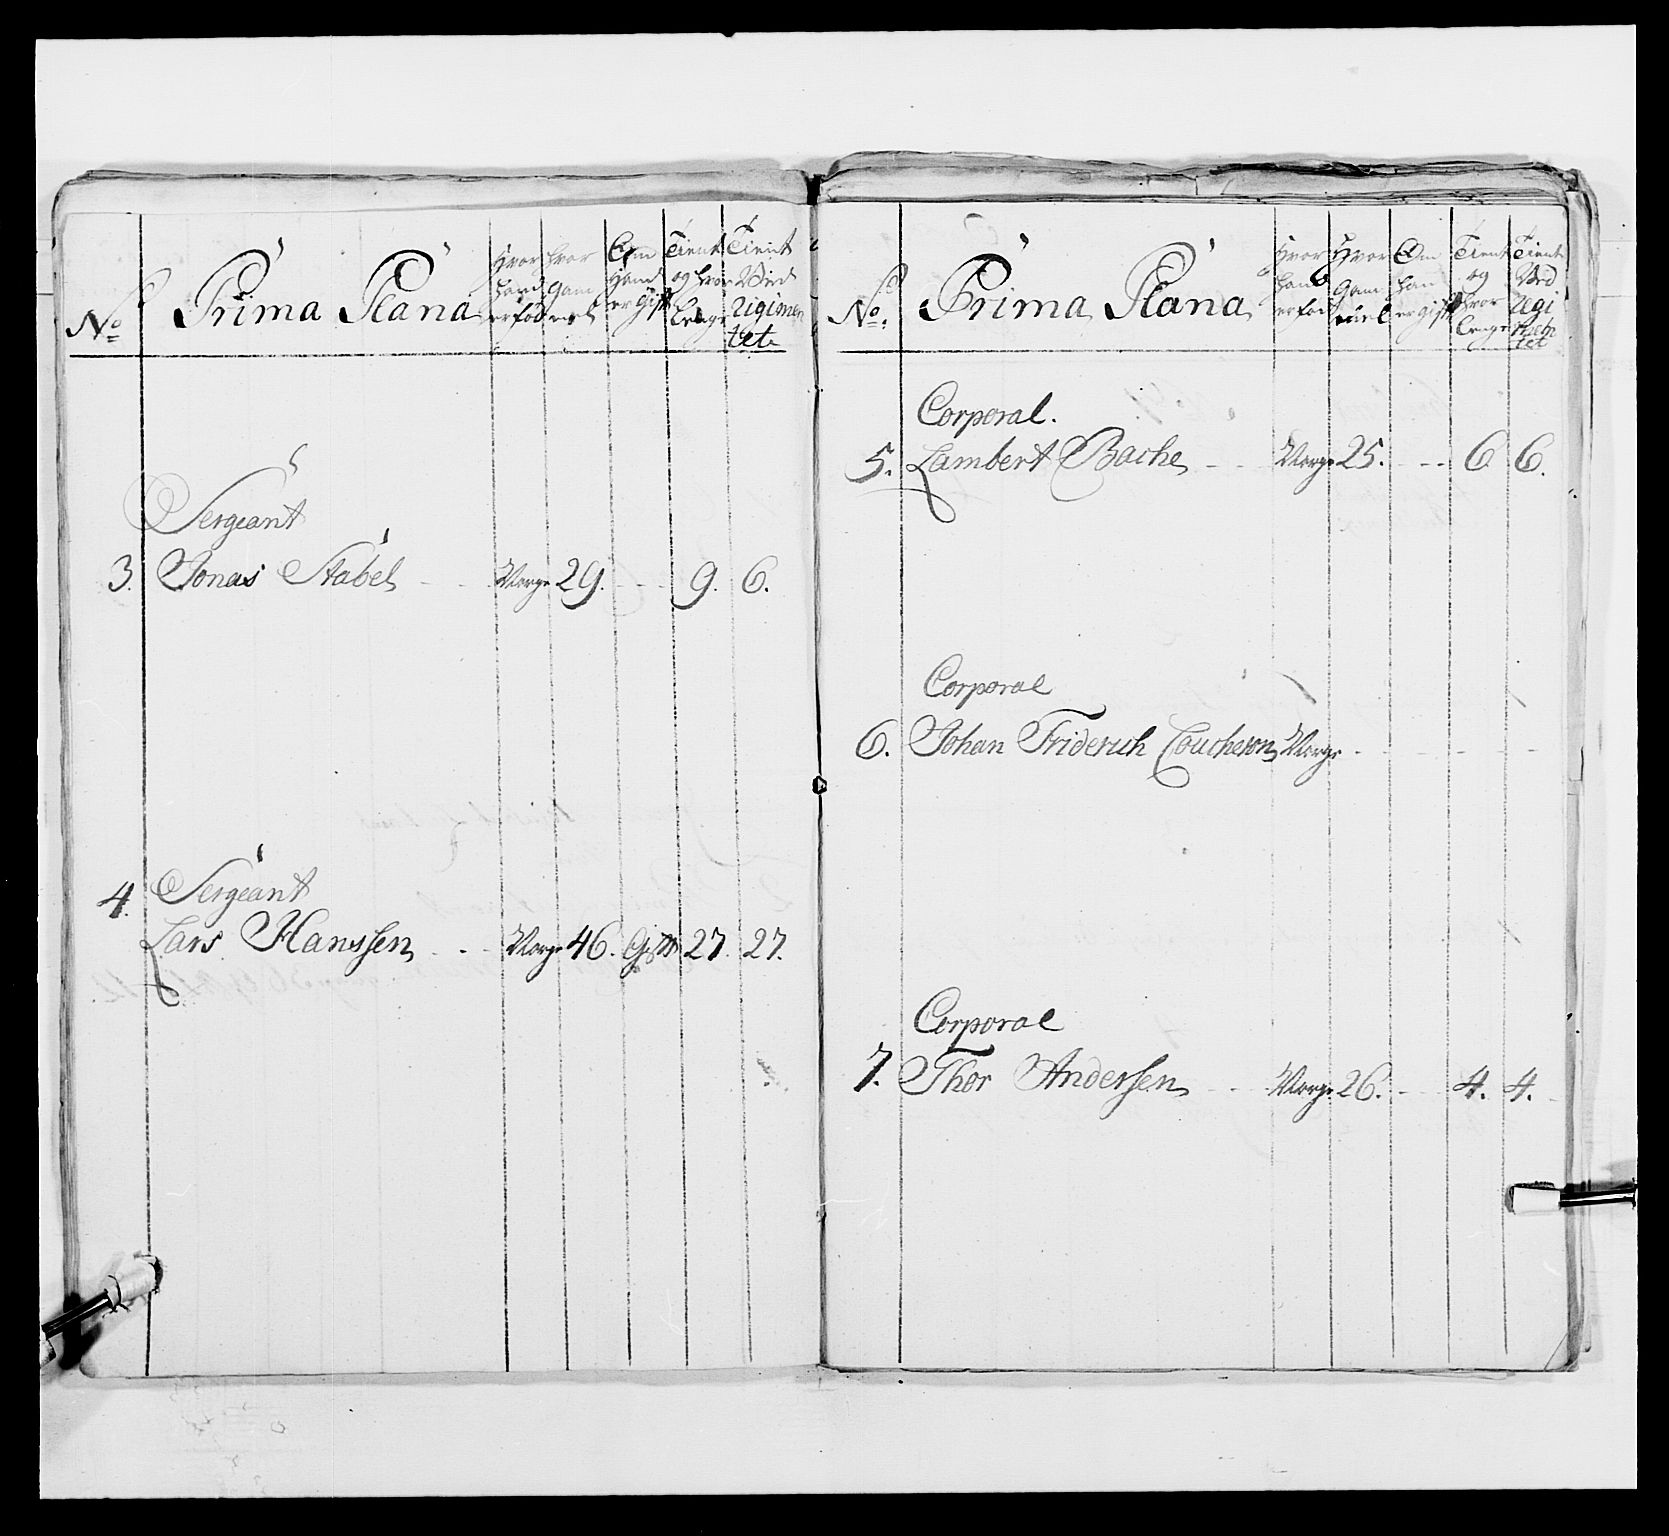 No Prima Plana Hvor Hand er fød hvor Gam. mel Om Hand er Gift Tient og hvor Lenge Tient Ved Regimen tet
Sergeant
3. Jonas Stabel - - Norge 29. - - 9. 6.
4. Sergeant
Lars Hanssen - - Norge 46. Gift 27. 27.
No: Prima Plana Hvor Hand er fød Hvor Gam mel Om han er gift Tient og hvor Lenge Tient Ved Regi men tet
Corporal.
5. Lambert Bache - - Norge 25. - - 6 6.
Corporal
6. Johan Friderich Coucheron Norge - - - - -
Corporal
7. Thor Andersen - - Norge 26. - - 4. 4.